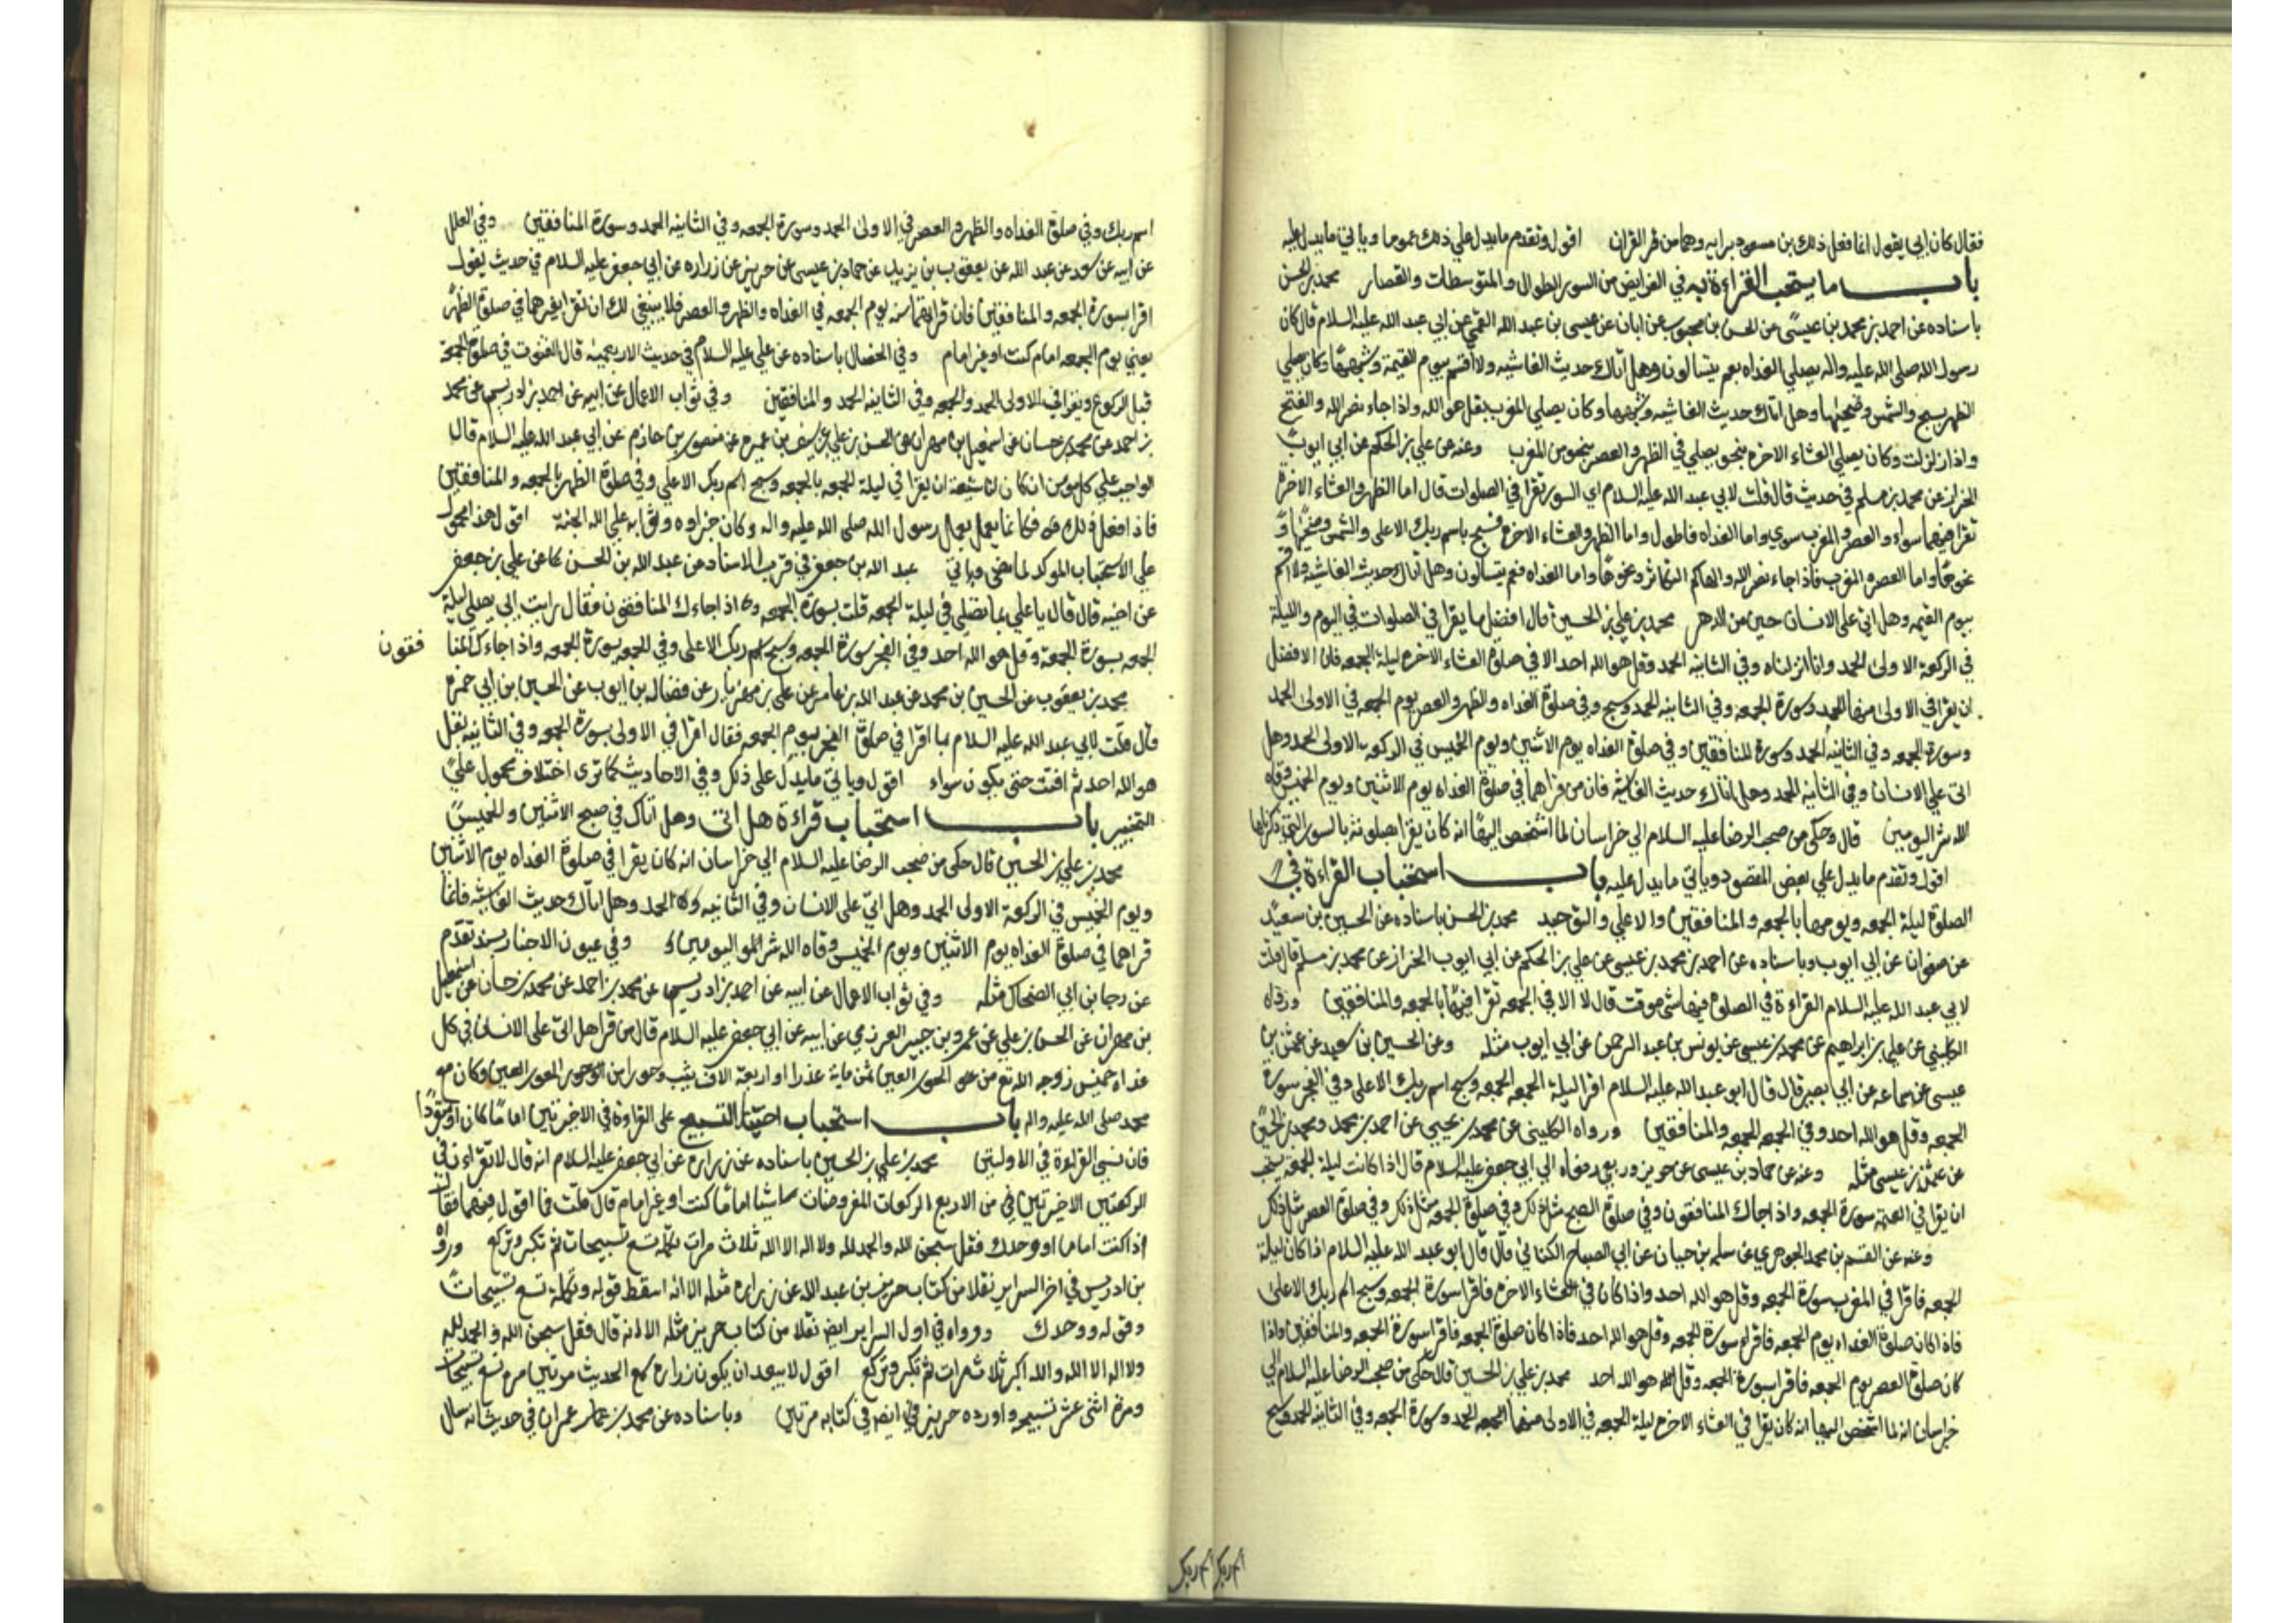 فقال كان ابي يقول انما فعل ذلك بن مسعود برايه وهما من القران اقول وتقدم ما يدل علي ذلك عموما وياتي ما يدل عليه
باب ما يستحب القراءة به في الفرايض من السور الطوال والمتوسطات والقصار محمد بن الحسن
باسناده عن احمد بن محمد بن عيسى عن الحسن بن محبوب عن ابان عن عيسى بن عبد الله القمي عن ابي عبد الله عليه السلام قال كان
رسول الله صلى الله عليه واله يصلي الغداه بعم يتسالون وهل اتاك حديث الغاشيه ولا اقسم بيوم القيمة وشبهها وكان يصلي
الظهر بسبح والشمس وضحيها وهل اتاك حديث الغاشيه وشبهها وكان يصلي المغرب بقل هو الله واذا جاء نصر الله والفتح
واذا زلزلت وكان يصلي العشاء الاخره بنحو يصلي في الظهر والعصر بنحو من المغرب وعنه عن علي بن الحكم عن ابي ايوب
الخزاز عن محمد بن مسلم في حديث قال قلت لابي عبد الله عليه السلام اي السور تقرا في الصلوات قال اما الظهر والعشاء الاخرة
تقرا فيهما سواء والعصر والمغرب سوي واما الغداه فاطول واما الظهر والعشاء الاخرة فسبح باسم ربك الاعلى والشمس وضحيها و
نحوها واما العصر والمغرب فاذا جاء نصر الله والهاكم التكاثر ونحوها واما الغداه فعم يتسالون وهل اتاك حديث الغاشيه ولا اقسم
بيوم القيمه وهل اتى على الانسان حين من الدهر محمد بن علي بن الحسين قال افضل ما يقرا في الصلوات في اليوم والليلة
في الركعة الاولى الحمد وانا انزلناه وفي الثانيه الحمد وقل هو الله احد الا في صلوة العشاء الاخره ليلة الجمعه فان الافضل
ان يقرا في الاولى منها الحمد وسورة الجمعه وفي الثانيه الحمد وسبح وفي صلوة الغداه والظهر والعصر يوم الجمعه في الاولى الحمد
وسورة الجمعه وفي الثانيه الحمد وسورة المنافقين وفي صلوة الغداه يوم الاثنين ويوم الخميس في الركعه الاولى الحمد وهل
اتى علي الانسان وفي الثانيه الحمد وهل اتاك حديث الغاشيه فان من قراهما في صلوة الغداه يوم الاثنين ويوم الخميس وقاه
الله شر اليومين قال وحكى من صحب الرضا عليه السلام الي خراسان لما اشخص اليها انه كان يقرا في صلوته بالسور التي ذكرناها
اقول وتقدم ما يدل علي بعض المقصود وياتي ما يدل عليه باب استحباب القراءة في
الصلوة ليلة الجمعه ويومها بالجمعه والمنافقين والاعلي والتوحيد محمد بن الحسن باسناده عن الحسين بن سعيد
عن صفوان عن ابي ايوب وباسناده عن احمد بن محمد بن عيسى عن علي بن الحكم عن ابي ايوب الخزاز عن محمد بن مسلم قال قلت
لابي عبد الله عليه السلام القراءة في الصلوة فيها شي موقت قال لا الا في الجمعه تقرا فيها بالجمعه والمنافقين ورواه
الكليني عن علي بن ابراهيم عن محمد بن عيسى عن يونس بن عبد الرحمن عن ابي ايوب مثله وعن الحسين بن سعيد عن عثمن بن
عيسى عن سماعه عن ابي بصير قال قال ابو عبد الله عليه السلام اقرا ليلة الجمعه الجمعه وسبح اسم ربك الاعلى وفي الفجر سورة
الجمعه وقل هو الله احد وفي الجمعه الجمعه والمنافقين ورواه الكليني عن محمد بن يحيى عن احمد بن محمد ومحمد بن الحسين
عن عثمن بن عيسى مثله وعنه عن حماد بن عيسى عن حريز وربعي رفعاه الي ابي جعفر عليه السلام قال اذا كانت ليلة الجمعه يستحب
ان يقرا في العتمه سورة الجمعه واذا جاك المنافقون وفي صلوة الصبح مثل ذلك وفي صلوة الجمعه مثل ذلك وفي صلوة العصر مثل ذلك
وعنه عن القسم بن محمد الجوهري عن سلمه بن حيان عن ابي الصباح الكناني قال قال ابو عبد الله عليه السلام اذا كان ليلة
الجمعه فاقرا في المغرب سورة الجمعه وقل هو الله احد واذا كان في العشاء الاخره فاقرا سورة الجمعه وسبح اسم ربك الاعلى
فاذا كان صلوة الغداه يوم الجمعه فاقرا سورة الجمعه وقل هو الله احد فاذا كان صلوة الجمعه فاقرا سورة الجمعه والمنافقين واذا
كان صلوة العصر يوم الجمعه فاقرا بسورة الجمعه وقل هو الله احد محمد بن علي بن الحسين قال حكى من صحب الرضا عليه السلام الي
خراسان انه لما اشخص اليها انه كان يقرا في العشاء الاخره ليلة الجمعه في الاولى منها الحمد وسورة الجمعه وفي الثانيه الحمد وسبح
اسم ربك
اسم ربك وفي صلوة الغداه والظهر والعصر في الاولى الحمد وسورة الجمعه وفي الثانيه الحمد وسورة المنافقين وفي العلل
عن ابيه عن سعد بن عبد الله عن يعقوب بن يزيد عن حماد بن عيسى عن حريز عن زراره عن ابي جعفر عليه السلام في حديث يقول
اقرا بسورة الجمعه والمنافقين فان قراءتهما سنه يوم الجمعه في الغداه والظهر والعصر فلا ينبغي لك ان تقرا بغيرهما في صلوة الظهر
يعني يوم الجمعه امام كنت او غير امام وفي الخصال باسناده عن علي عليه السلام في حديث الاربعميه قال القنوت في صلوة الجمعة
قبل الركوع ويقرا في الاولى الحمد والجمعه وفي الثانيه الحمد والمنافقين وفي ثواب الاعمال عن ابيه عن احمد بن ادريس عن محمد
بن احمد عن محمد بن حسان عن اسمعيل بن مهران عن الحسن بن علي عن سيف بن عميره عن منصور بن حازم عن ابي عبد الله عليه السلام قال
الواجب علي كل مومن ان كان لنا شيعة ان يقرا في ليلة الجمعه بالجمعه وسبح اسم ربك الاعلي وفي صلوة الظهر بالجمعه والمنافقين
فاذا فعل ذلك فكانما يعمل بعمل رسول الله صلى الله عليه واله وكان جزاوه وثوابه علي الله الجنة اقول هذا محمول
علي الاستحباب الموكد لما مضى وياتي عبد الله بن جعفر في قرب الاسناد عن عبد الله بن الحسن عن علي بن جعفر
عن اخيه قال قال يا علي بما تصلي في ليلة الجمعه قلت بسورة الجمعه واذا جاءك المنافقون فقال رايت ابي يصلي ليلة
الجمعه بسورة الجمعة وقل هو الله احد وفي الفجر سورة الجمعه وسبح اسم ربك الاعلى وفي الجمعه سورة الجمعه واذا جاءك المنا فقون
محمد بن يعقوب عن الحسين بن محمد عن عبد الله بن عامر عن علي بن مهزيار عن فضاله بن ايوب عن الحسين بن ابي حمزه
قال قلت لابي عبد الله عليه السلام بما اقرا في صلوة الفجر يوم الجمعه فقال اقرا في الاولى بسورة الجمعه وفي الثانيه بقل
هو الله احد ثم اقنت حتى يكون سواء اقول وياتي ما يدل على ذلك وفي الاحاديث كما ترى اختلاف محمول علي
التخيير باب استحباب قراءة هل اتى وهل اتاك في صبح الاثنين والخميس
محمد بن علي بن الحسين قال حكى من صحب الرضا عليه السلام الي خراسان انه كان يقرا في صلوة الغداه يوم الاثنين
ويوم الخميس في الركعة الاولى الحمد وهل اتى على الانسان وفي الثانيه الحمد وهل اتاك حديث الغاشيه فانما
قراهما في صلوة الغداه يوم الاثنين ويوم الخميس وقاه الله شر اليومين وفي عيون الاخبار بسند تقدم
عن رجا بن ابي الضحاك مثله وفي ثواب الاعمال عن ابيه عن احمد بن ادريس عن محمد بن احمد عن محمد بن حسان عن اسمعيل
بن مهران عن الحسن بن علي عن عمرو بن جبير العرزمي عن ابيه عن ابي جعفر عليه السلام قال من قرا هل اتى على الانسان في كل
غداه خميس زوجه الله من الحور العين ثمن مايه عذرا واربعة الاف ثيب وحورا من الحور العين وكان مع
محمد صلى الله عليه واله باب استحباب اختيار التسبيح على القراءة في الاخيرتين اماما كان او منفردا
فان نسي القراءة في الاوليتين محمد بن علي بن الحسين باسناده عن زراره عن ابي جعفر عليه السلام انه قال لا تقران في
الركعتين الاخيرتين من الاربع الركعات المفروضات شيا اماما كنت او غير امام قال قلت فما اقول فيهما فقال
اذا كنت اماما او وحدك فقل سبحن الله والحمد لله ولا اله الا الله ثلاث مرات تكمله تسع تسبيحات ثم تكبر وتركع ورواه
بن ادريس في اخر السراير نقلا من كتاب حريز بن عبد الله عن زراره مثله الا انه اسقط قوله وتكملة تسع تسبيحات
وقوله ووحدك ورواه في اول السراير ايض نقلا من كتاب حريز مثله الا انه قال فقل سبحن الله والحمد لله
ولا اله الا الله والله اكبر ثلاث مرات ثم تكبر وتركع اقول لا يبعد ان يكون زراره سمع الحديث مرتين مره تسع تسبيحات
ومره اثنى عشر تسبيحه واورده حريز ايض في كتابه مرتين وباسناده عن محمد بن عمران في حديث انه سال
اسم ربك